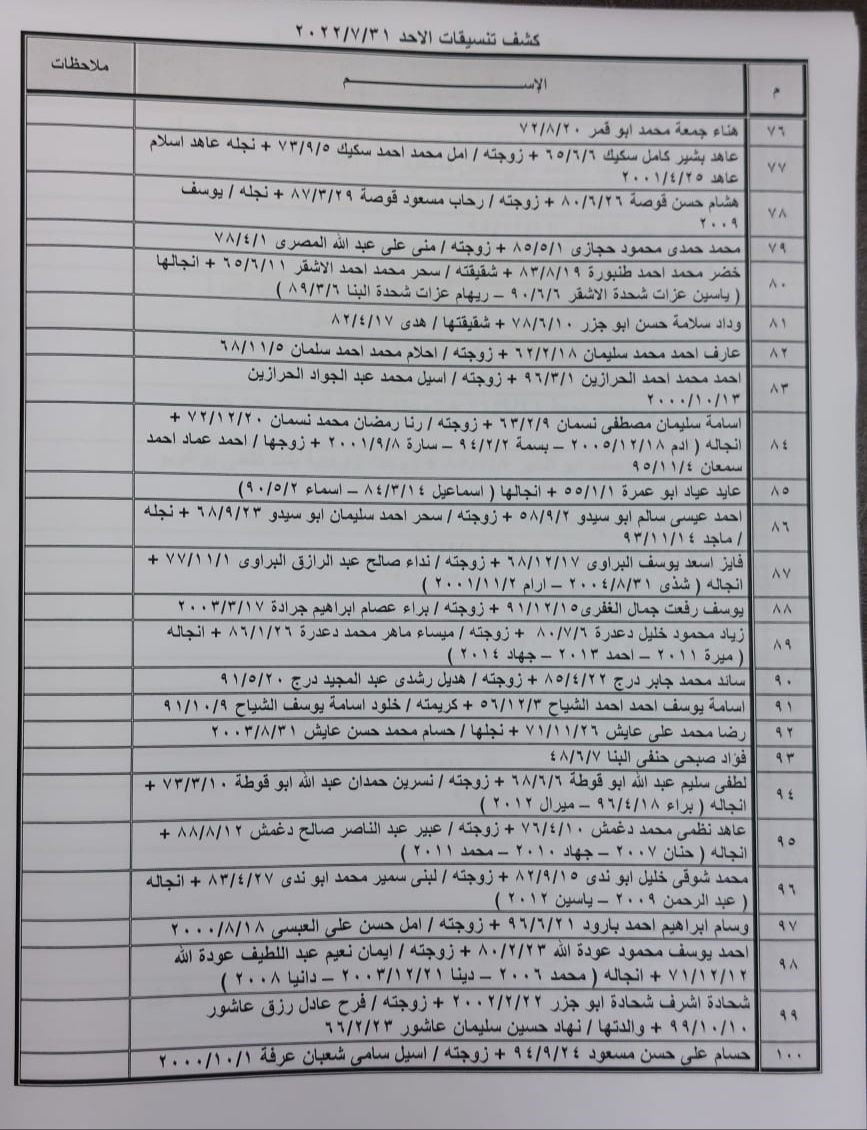 كشف تنسيقات الاحد ٢٠٢٢/٧/٣١
م الإســــم ملاحظات
٧٦ هناء جمعة محمد ابو قمر ٧٢/٨/٢٠
٧٧ عاهد بشير كامل سكيك ٦٥/٦/٦ + زوجته / امل محمد احمد سكيك ٧٣/٩/٥ + نجله عاهد اسلام
عاهد ٢٠٠١/٤/٢٥
٧٨ هشام حسن قوصة ٨٠/٦/٢٦ + زوجته / رحاب مسعود قوصة ٨٧/٣/٢٩ + نجله / يوسف
٢٠٠٩
٧٩ محمد حمدى محمود حجازى ٨٥/٥/١ + زوجته / منى على عبد الله المصرى ٧٨/٤/١
٨٠ خضر محمد احمد طنبورة ٨٣/٨/١٩ + شقيقته / سحر محمد احمد الاشقر ٦٥/٦/١١ + انجالها
( ياسين عزات شحدة الاشقر ٩٠/٦/٦ – ريهام عزات شحدة البنا ٨٩/٣/٦ )
٨١ وداد سلامة حسن ابو جزر ٧٨/٦/١٠ + شقيقتها / هدى ٨٢/٤/١٧
٨٢ عارف احمد محمد سليمان ٦٢/٢/١٨ + زوجته / احلام محمد احمد سلمان ٦٨/١١/٥
٨٣ احمد محمد احمد الحرازين ٩٦/٣/١ + زوجته / اسيل محمد عبد الجواد الحرازين
٢٠٠٠/١٠/١٣
٨٤ اسامة سليمان مصطفى نسمان ٦٣/٢/٩ + زوجته / رنا رمضان محمد نسمان ٧٢/١٢/٢٠ +
انجاله ( ادم ٢٠٠٥/١٢/١٨ – بسمة ٩٤/٢/٢ – سارة ٢٠٠١/٩/٨ + زوجها / احمد عماد احمد
سمعان ٩٥/١١/٤
٨٥ عايد عياد ابو عمرة ٥٥/١/١ + انجالها ( اسماعيل ٨٤/٣/١٤ – اسماء ٩٠/٥/٢)
٨٦ احمد عيسى سالم ابو سيدو ٥٨/٩/٢ + زوجته / سحر احمد سليمان ابو سيدو ٦٨/٩/٢٣ + نجله
/ ماجد ٩٣/١١/١٤
٨٧ فايز اسعد يوسف البراوى ٦٨/١٢/١٧ + زوجته / نداء صالح عبد الرازق البراوى ٧٧/١١/١ +
انجاله ( شذى ٢٠٠٤/٨/٣١ – ارام ٢٠٠١/١١/٢ )
٨٨ يوسف رفعت جمال الغفرى ٩١/١٢/١٥ + زوجته / براء عصام ابراهيم جرادة ٢٠٠٣/٣/١٧
٨٩ زياد محمود خليل دعدرة ٨٠/٧/٦ + زوجته / ميساء ماهر محمد دعدرة ٨٦/١/٢٦ + انجاله
( ميرة ٢٠١١ – احمد ٢٠١٣ – جهاد ٢٠١٤ )
٩٠ سائد محمد جابر درج ٨٥/٤/٢٢ + زوجته / هديل رشدى عبد المجيد درج ٩١/٥/٢٠
٩١ اسامة يوسف احمد احمد الشياح ٥٦/١٢/٣ + كريمته / خلود اسامة يوسف الشياح ٩١/١٠/٩
٩٢ رضا محمد على عايش ٧١/١١/٢٦ + نجلها / حسام محمد حسن عايش ٢٠٠٣/٨/٣١
٩٣ فؤاد صبحى حنفى البنا ٤٨/٦/٧
٩٤ لطفى سليم عبد الله ابو قوطة ٦٨/٦/٦ + زوجته / نسرين حمدان عبد الله ابو قوطة ٧٣/٣/١٠ +
انجاله ( براء ٩٦/٤/١٨ – ميرال ٢٠١٢ )
٩٥ عاهد نظمى محمد دغمش ٧٦/٤/١٠ + زوجته / عبير عبد الناصر صالح دغمش ٨٨/٨/١٢ +
انجاله ( حنان ٢٠٠٧ – جهاد ٢٠١٠ – محمد ٢٠١١ )
٩٦ محمد شوقى خليل ابو ندى ٨٢/٩/١٥ + زوجته / لبنى سمير محمد ابو ندى ٨٣/٤/٢٧ + انجاله
( عبد الرحمن ٢٠٠٩ – ياسين ٢٠١٢ )
٩٧ وسام ابراهيم احمد بارود ٩٦/٦/٢١ + زوجته / امل حسن على العبسى ٢٠٠٠/٨/١٨
٩٨ احمد يوسف محمود عودة الله ٨٠/٢/٢٣ + زوجته / ايمان نعيم عبد اللطيف عودة الله
٧١/١٢/١٢ + انجاله ( محمد ٢٠٠٦ – دينا ٢٠٠٣/١٢/٢١ – دانيا ٢٠٠٨ )
٩٩ شحادة اشرف شحادة ابو جزر ٢٠٠٢/٢/٢٢ + زوجته / فرح عادل رزق عاشور
٩٩/١٠/١٠ + والدتها / نهاد حسين سليمان عاشور ٦٦/٢/٢٣
١٠٠ حسام على حسن مسعود ٩٤/٩/٢٤ + زوجته / اسيل سامى شعبان عرفة ٢٠٠٠/١٠/١